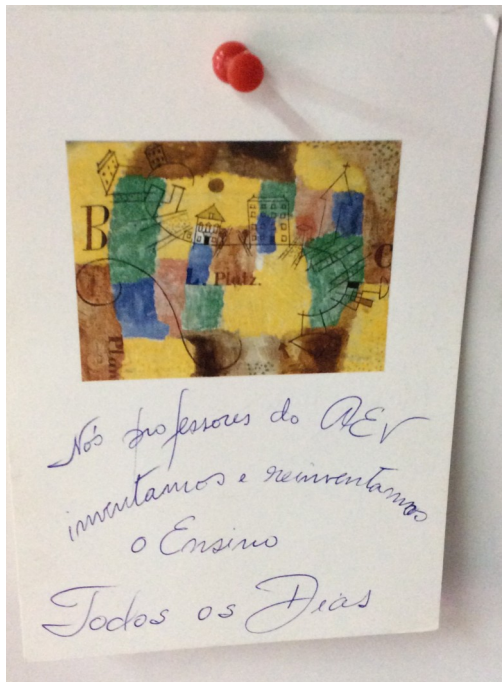 B
L. Platz.
Nós professores do AEV
inventamos e reinventamos
o Ensino
Todos os Dias